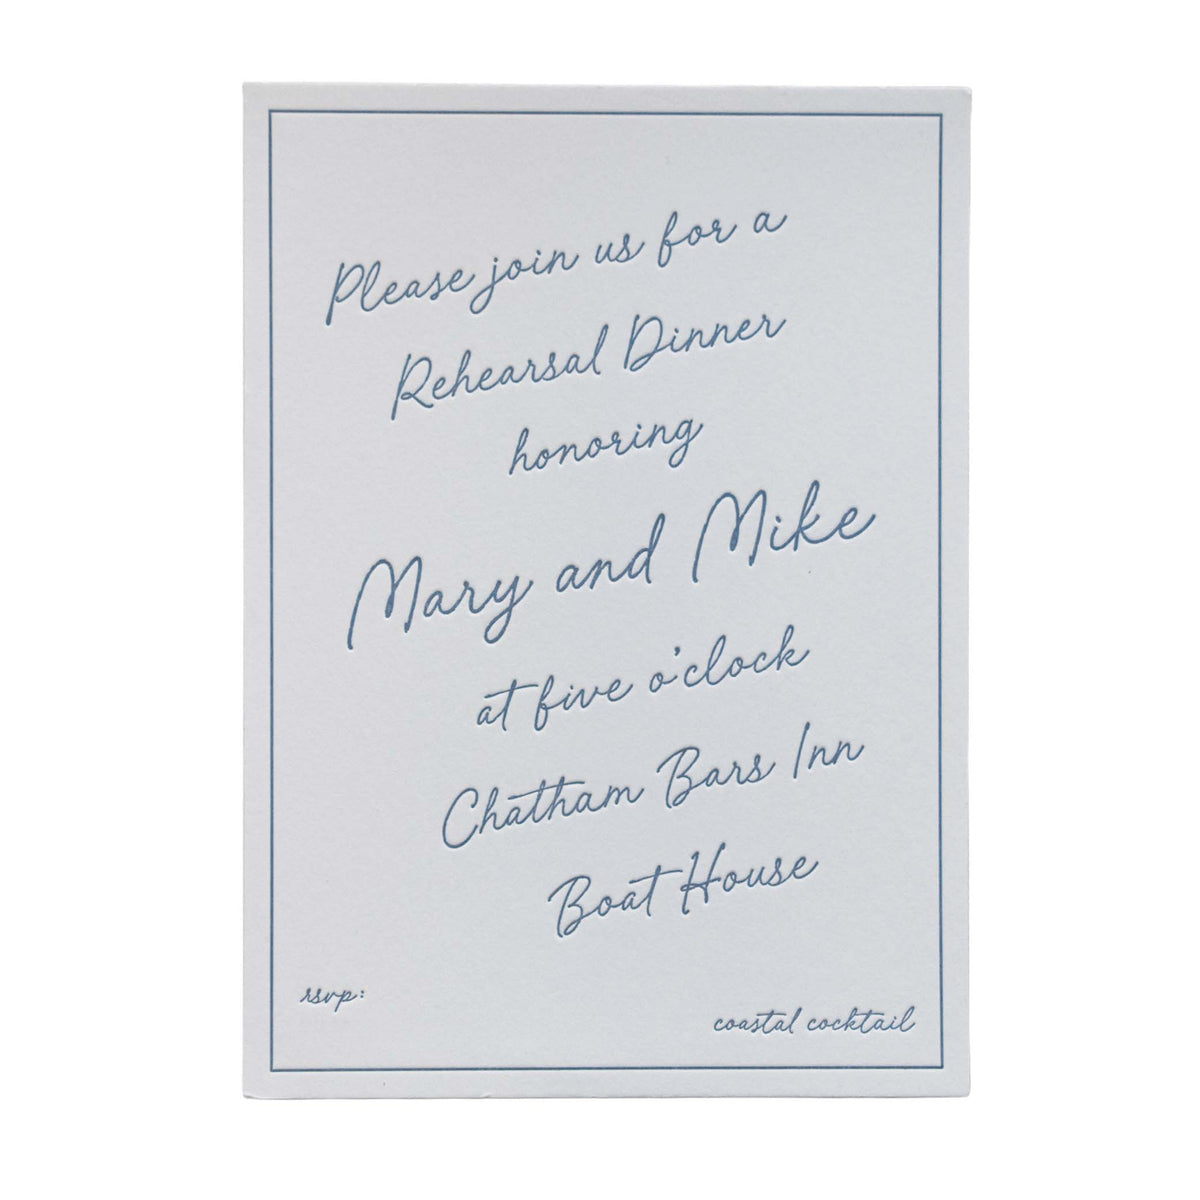 Please join us for a
Rehearsal Dinner
honoring
Mary and Mike
at five o'clock
Chatham Bars Inn
Boat House
rsvp:
coastal cocktail